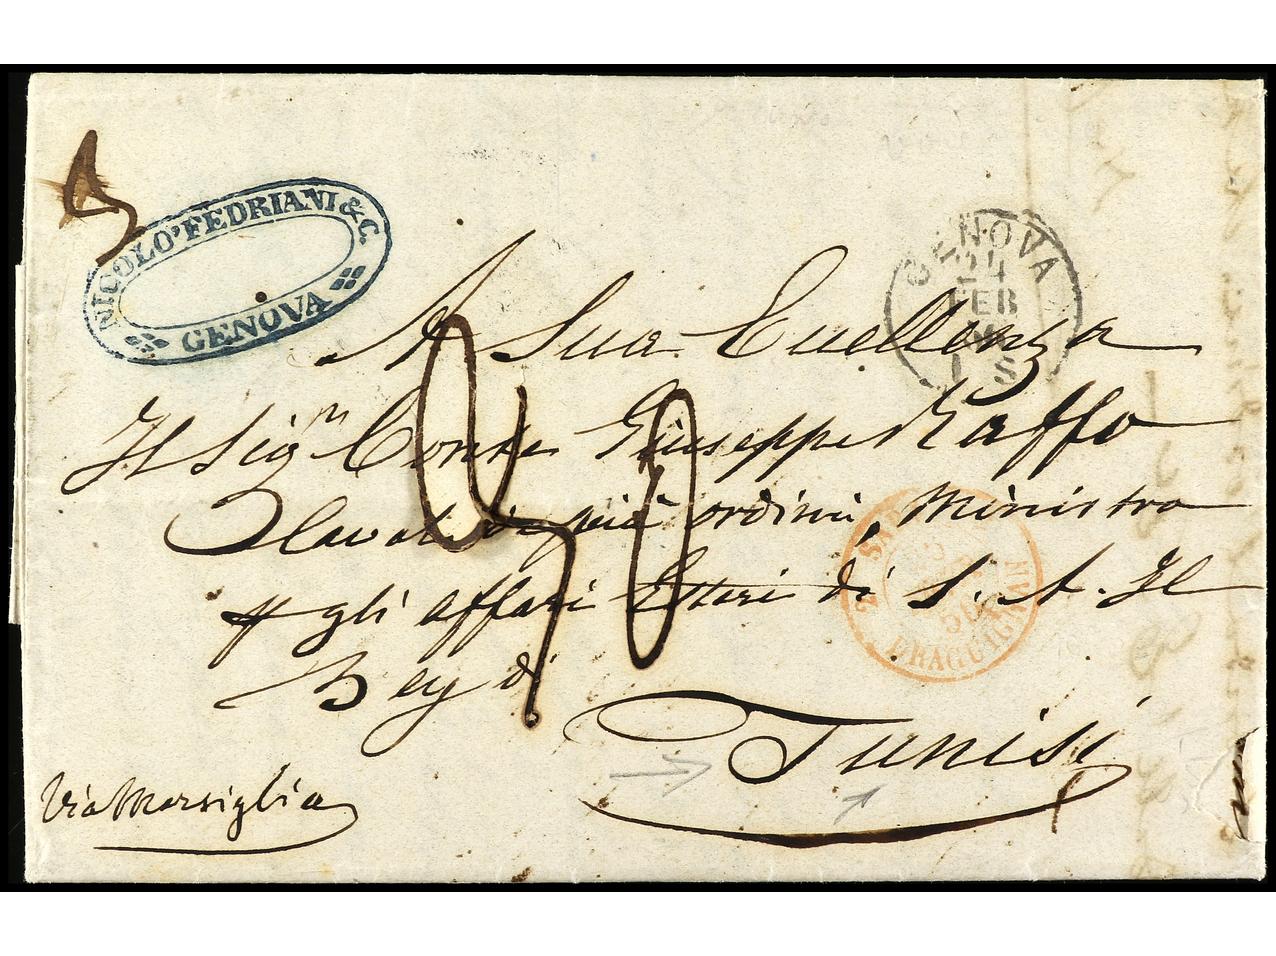 NICOLO' FEDRIANI & C.
GENOVA
GENOVA
24
FEB
1 S
A Sua Eccellenza
Il Sigʳ Conte Giuseppe Raffo
Caval. di più ordini, Ministro
gli affari Esteri di S. A. Il
Bey di
Tunisi
Via Marsiglia
2 SARD.
50
DRAGUIGNAN